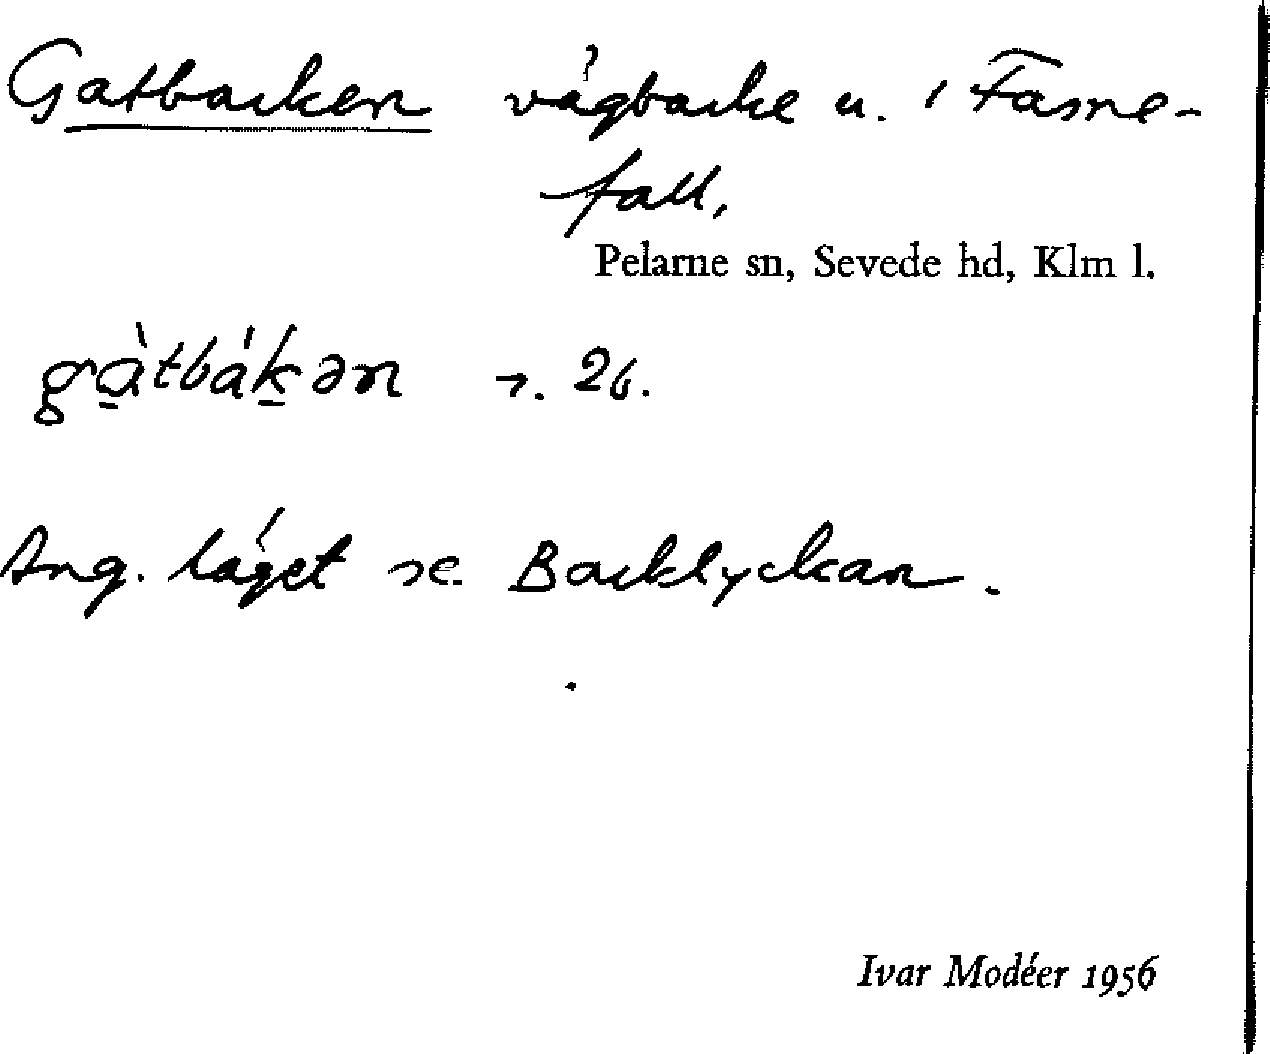 Gatbacken vägbacke u. i Farne-
fall,
Pelarne sn, Sevede hd, Klm l.
gàtbákən r. 26.
Ang. läget se Backlyckan.
Ivar Modéer 1956